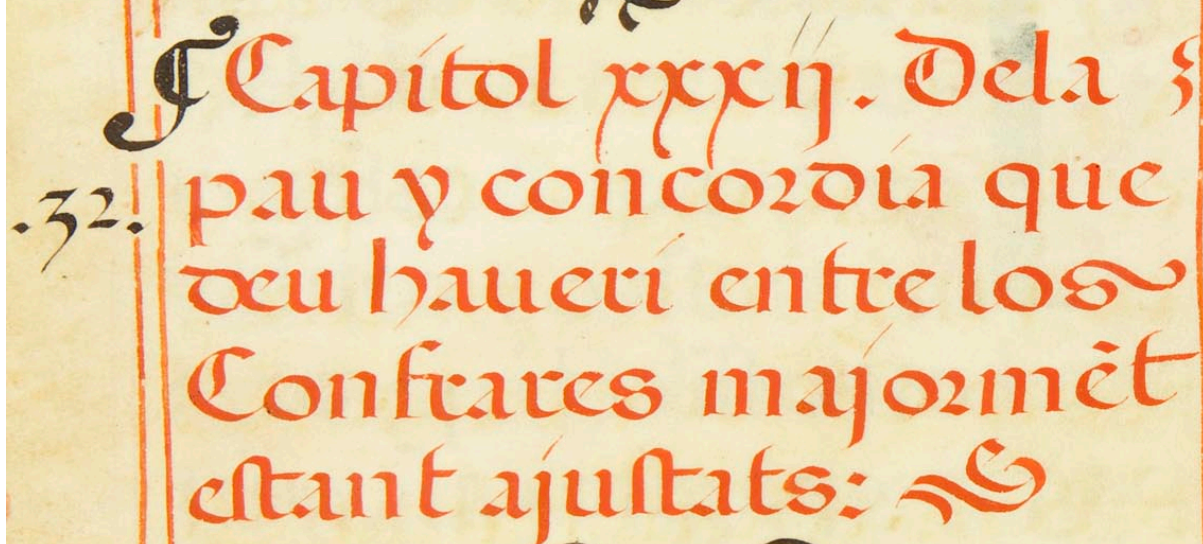 ¶ Capitol xxxij. Dela
.32. pau y concordia que
deu haueri entre los
Confrares majormẽt
estant ajustats: